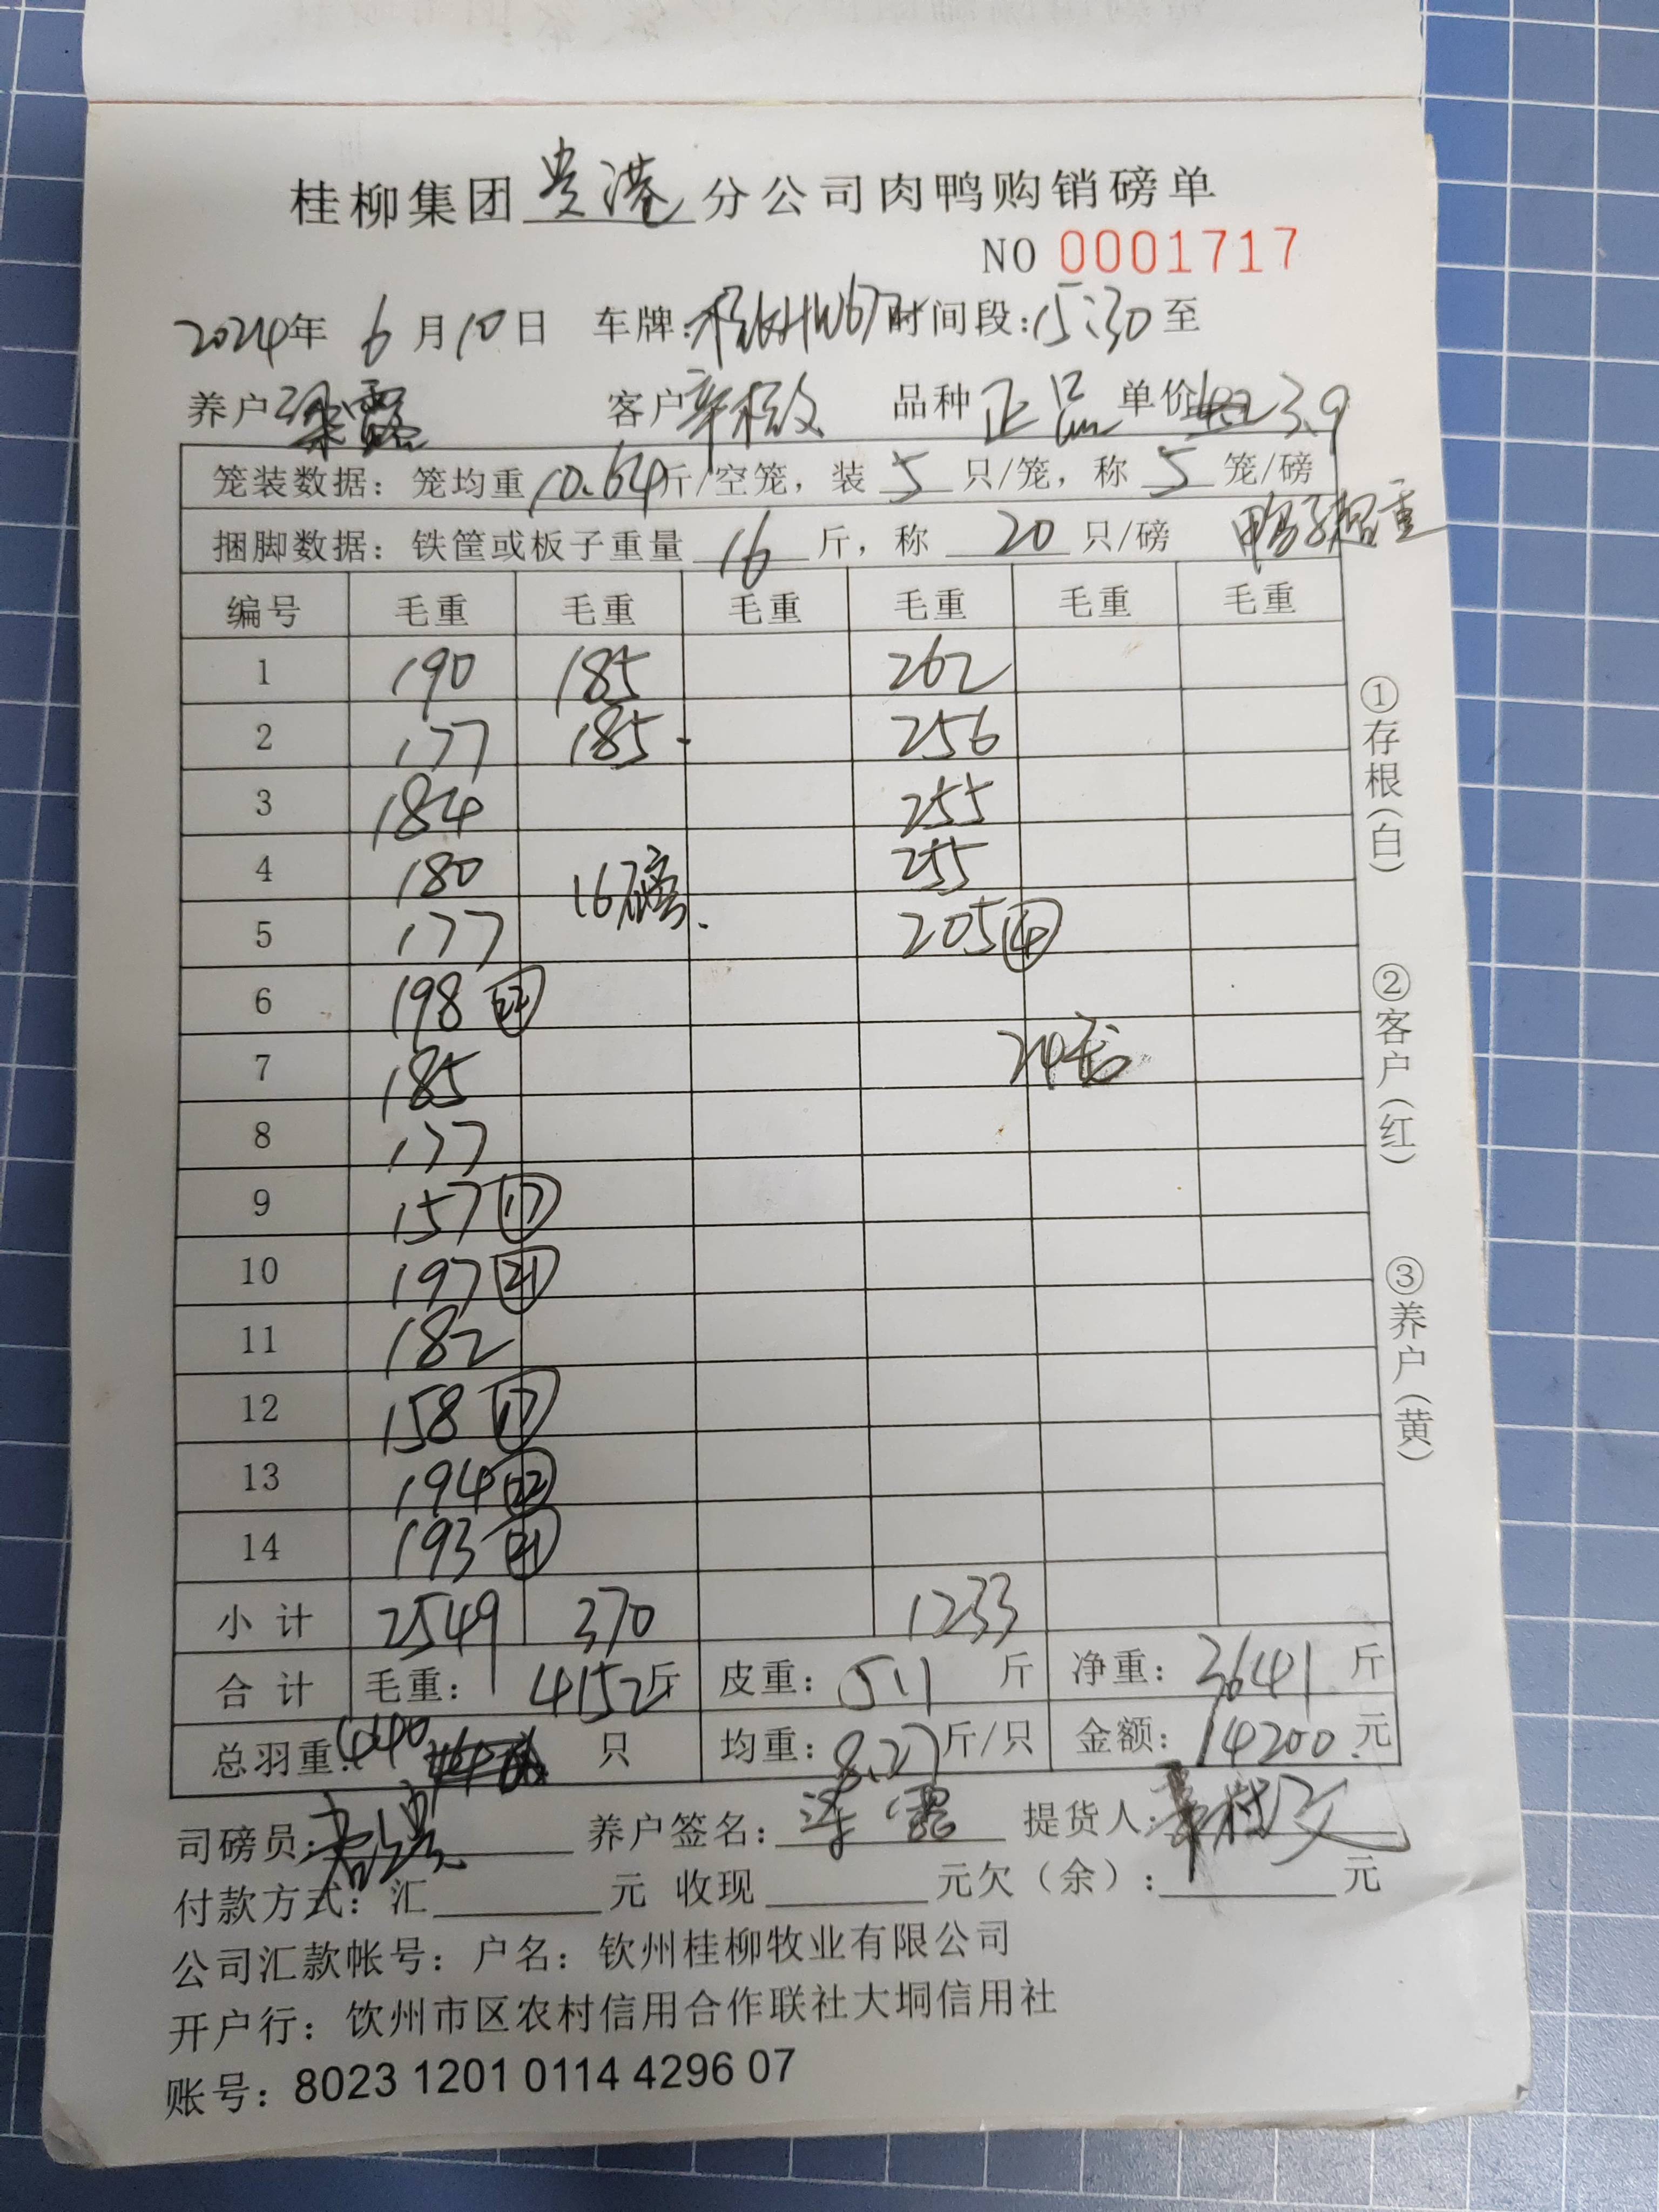 桂柳集团贵港分公司肉鸭购销磅单
NO 0001717
2024年 6月10日 车牌: 时间段:15:30至
养户梁露 客户 品种 正品 单价 3.9
笼装数据: 笼均重10.64斤/空笼, 装 5 只/笼, 称 5 笼/磅
捆脚数据: 铁筐或板子重量 16 斤, 称 20 只/磅 鸭子超重
编号 毛重 毛重 毛重 毛重 毛重 毛重
1 190 185 262
2 177 185 256
3 184 255
4 180 16磅. 255
5 177 205④
6 198㉒
7 185 24笼
8 177
9 157⑰
10 197㉑
11 182
12 158⑰
13 194㉒
14 193㉑
小计 2549 370 1233
合计 毛重: 4152斤 皮重: 511 斤 净重: 3641 斤
总羽重:440 只 均重: 8.27斤/只 金额: 14200.元
司磅员: 养户签名: 梁露 提货人:
付款方式: 汇 元 收现 元欠(余): 元
公司汇款帐号: 户名: 钦州桂柳牧业有限公司
开户行: 钦州市区农村信用合作联社大垌信用社
账号: 8023 1201 0114 4296 07
①存根(白) ②客户(红) ③养户(黄)